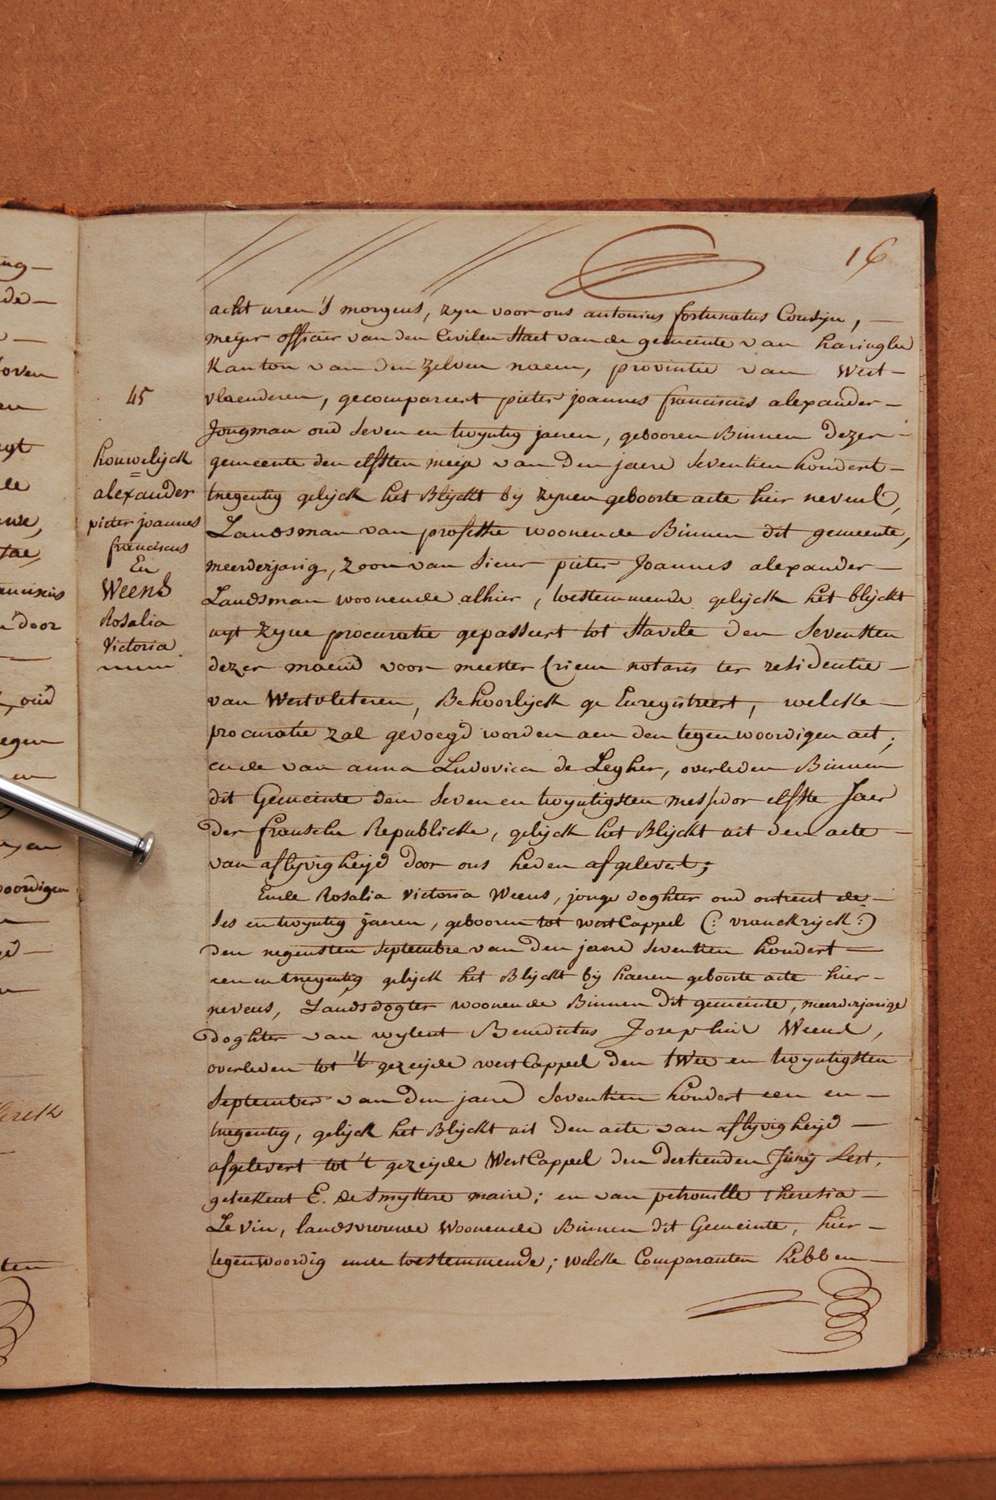 16
acht uren 's morgens, zyn voor ons antonius fortunatus Cousyn, —
meijer officier van den Civilen Staet van de gemeente van haringhe
Kanton van den zelven naem, provintie van West-
vlaenderen, gecompareert pieter joannes franciscus alexander —
Jongman oud seven en twyntig jaeren, gebooren Binnen dezer -
gemeente den elfsten meije van den jaere seventien hondert —
tnegentig gelijck het Blijckt bij zijnen geboorte acte hier nevens,
Landsman van professie woonende Binnen dit gemeente,
meerderjarig, zoon van Sieur pieter Joannes alexander —
Landsman woonende alhier, toestemmende gelijck het blijckt
uyt zijne procuratie gepasseert tot Stavele den sevensten
dezer maend voor meester Criem notaris ter residentie —
van Westvleteren, Behoorlijck ge Enregistreert, welcke —
procuratie zal gevoegd worden aen den tegenwoordigen act;
ende van anna Ludovica de Legher, overleden Binnen
dit Gemeinte den seven en twyntigsten messidor elfste Jaer
der fransche Republicke, gelijck het Blijckt uit den acte —
van aflijvigheijd door ons heden afgelevert;
Ende Rosalia Victoria Weens, jonge doghter oud ontrent de -
ses en twyntig jaeren, gebooren tot westCappel (: vranckrijck :)
den negensten septembre van den jaere seventien hondert —
een en tnegentig gelijck het Blijckt bij haeren geboorte acte hier -
nevens, Landsdogter woonende Binnen dit gemeinte, meerderjarige
doghter van wylent Benedictus Josephus Weens,
overleden tot 't gezeijde westCappel den twee en twyntigsten
September van den jaere seventien hondert een en —
tnegentig, gelijck het Blijckt uit den acte van aflijvigheijd —
afgelevert tot 't gezeijde WestCappel den dertienden Junij Lest,
geteekent E. de Smyttere maire; en van petronille theresia —
Le Vin, landsvrouwe Woonende Binnen dit Gemeinte, hier —
tegenwoordig ende toestemmende; welcke Comparanten hebben —
45
houwelijck
=
alexander
pieter joannes
franciscus
En
Weens
Rosalia
Victoria